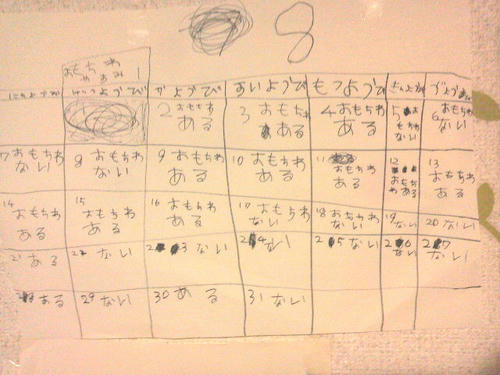 8
おもちゃ
やすみ 1
にちようび げつようび かようび すいようび もくようび きんようび どようび
2 おもちゃ ある
3 おもちゃ ある
4 おもちゃ ある
5 おもちゃ ない
6 おもちゃ ない
7 おもちゃ ない
8 おもちゃ ない
9 おもちゃ ある
10 おもちゃ ある
11 おもちゃ ある
12 おもちゃ ある
13 おもちゃ ある
14 おもちゃ ある
15 おもちゃ ある
16 おもちゃ ある
17 おもちゃ ない
18 おもちゃ ない
19 ない
20 ない
21 ある
ない
23 ない
24 ない
25 ない
26 ない
27 ない
ある
29 ない
30 ある
31 ない